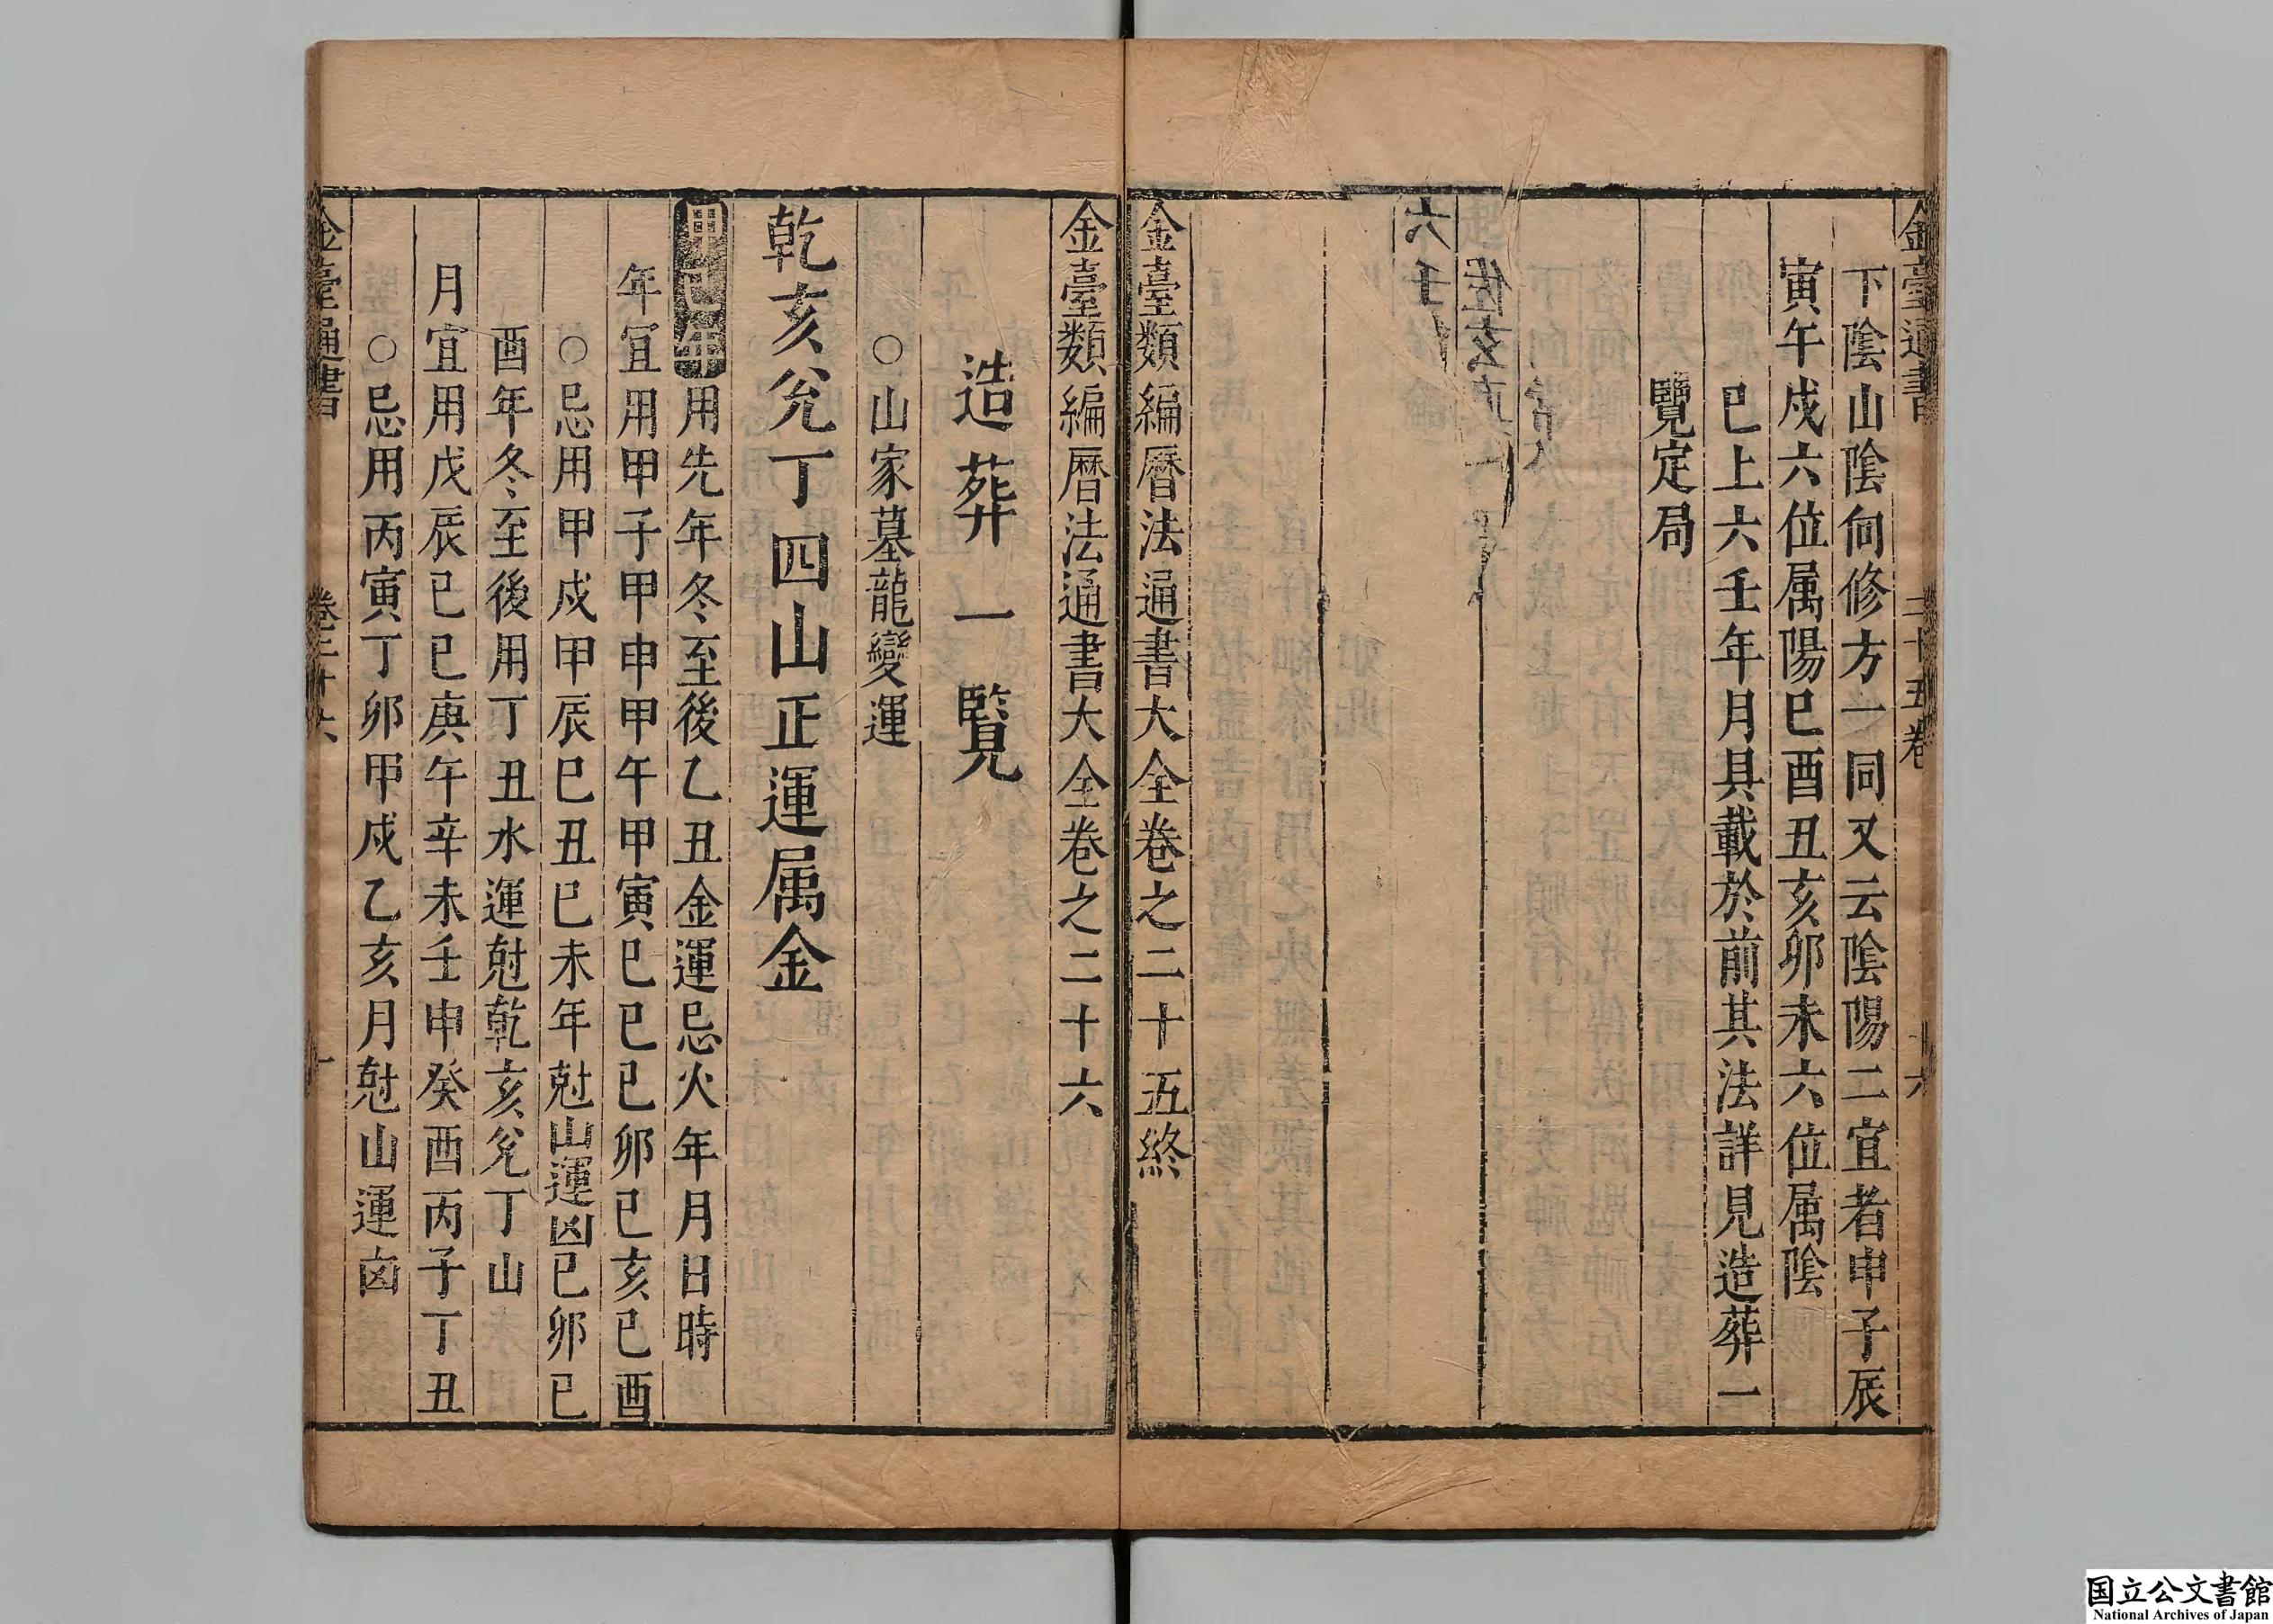 金臺通書
二十五卷
十六
下陰山陰向修方一同又云陰陽二宜者申子辰
寅午戍六位属陽巳酉丑亥卯未六位属陰
巳上六壬年月具載於前其法詳見造葬一
覽定局
六壬
金臺類編曆法通書大全卷之二十五終
金臺類編曆法通書大全卷之二十六
造葬一覽
○山家墓龍變運
乾亥兊丁四山正運属金
甲己年用先年冬至後乙丑金運忌火年月日時
年宜用甲子甲申甲午甲寅己巳己卯己亥己酉
○忌用甲戍甲辰巳丑巳未年尅山運凶巳卯巳
酉年冬至後用丁丑水運尅乾亥兊丁山
月宜用戊辰己巳庚午辛未壬申癸酉丙子丁丑
○忌用丙寅丁卯甲戍乙亥月尅山運凶
金臺通書
卷二十六
一
国立公文書館
National Archives of Japan